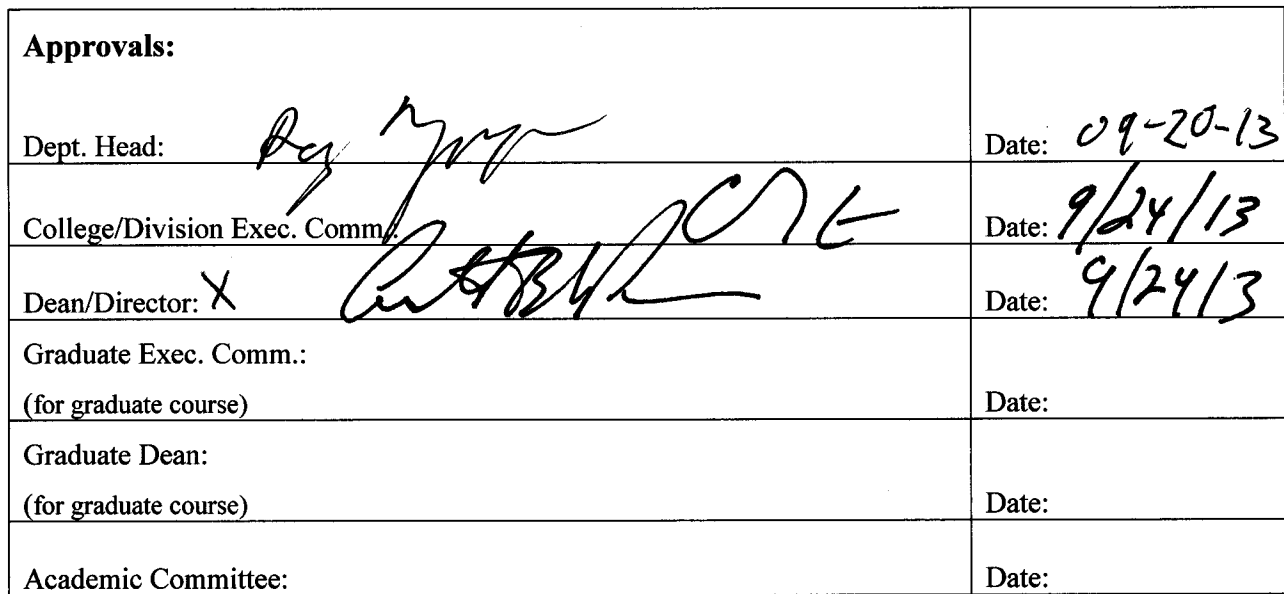 Approvals:
Dept. Head: Date: 09-20-13
College/Division Exec. Comm.: Date: 9/24/13
Dean/Director: X Date: 9/24/13
Graduate Exec. Comm.:
(for graduate course) Date:
Graduate Dean:
(for graduate course) Date:
Academic Committee: Date: